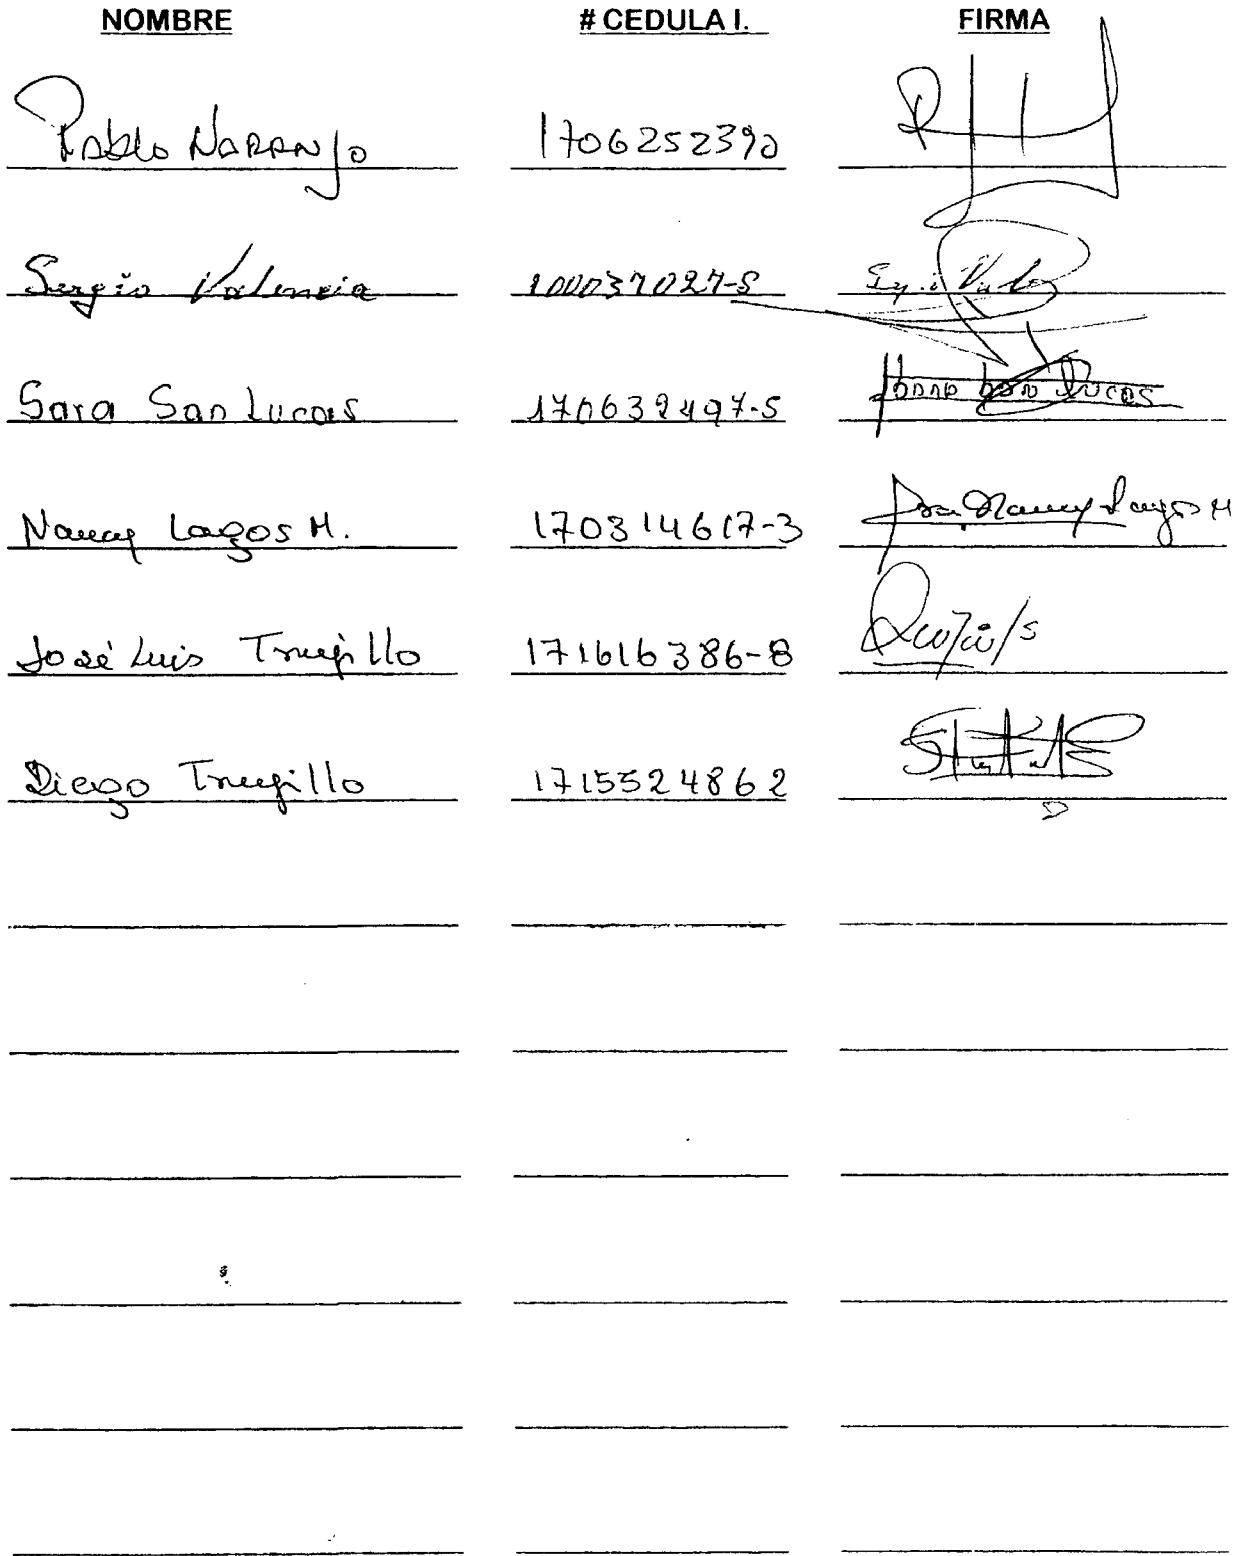 NOMBRE # CEDULA I. FIRMA
Pablo Naranjo 1706252390
Sergio Valencia 100037027-5
Sara San Lucas 170632497-5 San Lucas
Nancy Lagos M. 170314617-3 Nancy Lagos M
José Luis Trujillo 171616386-8
Diego Trujillo 1715524862